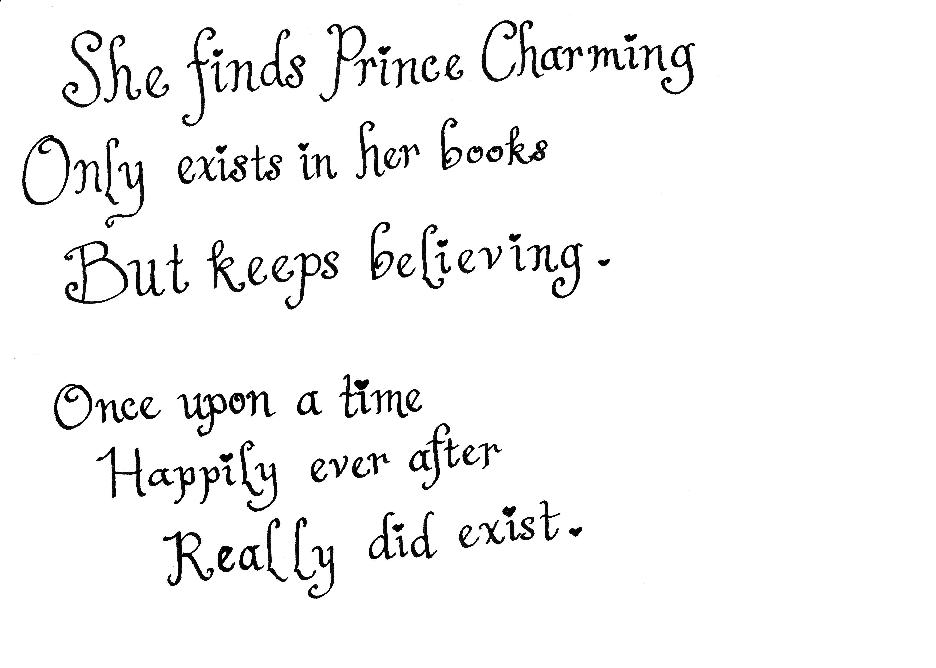 She finds Prince Charming
Only exists in her books
But keeps believing.
Once upon a time
Happily ever after
Really did exist.